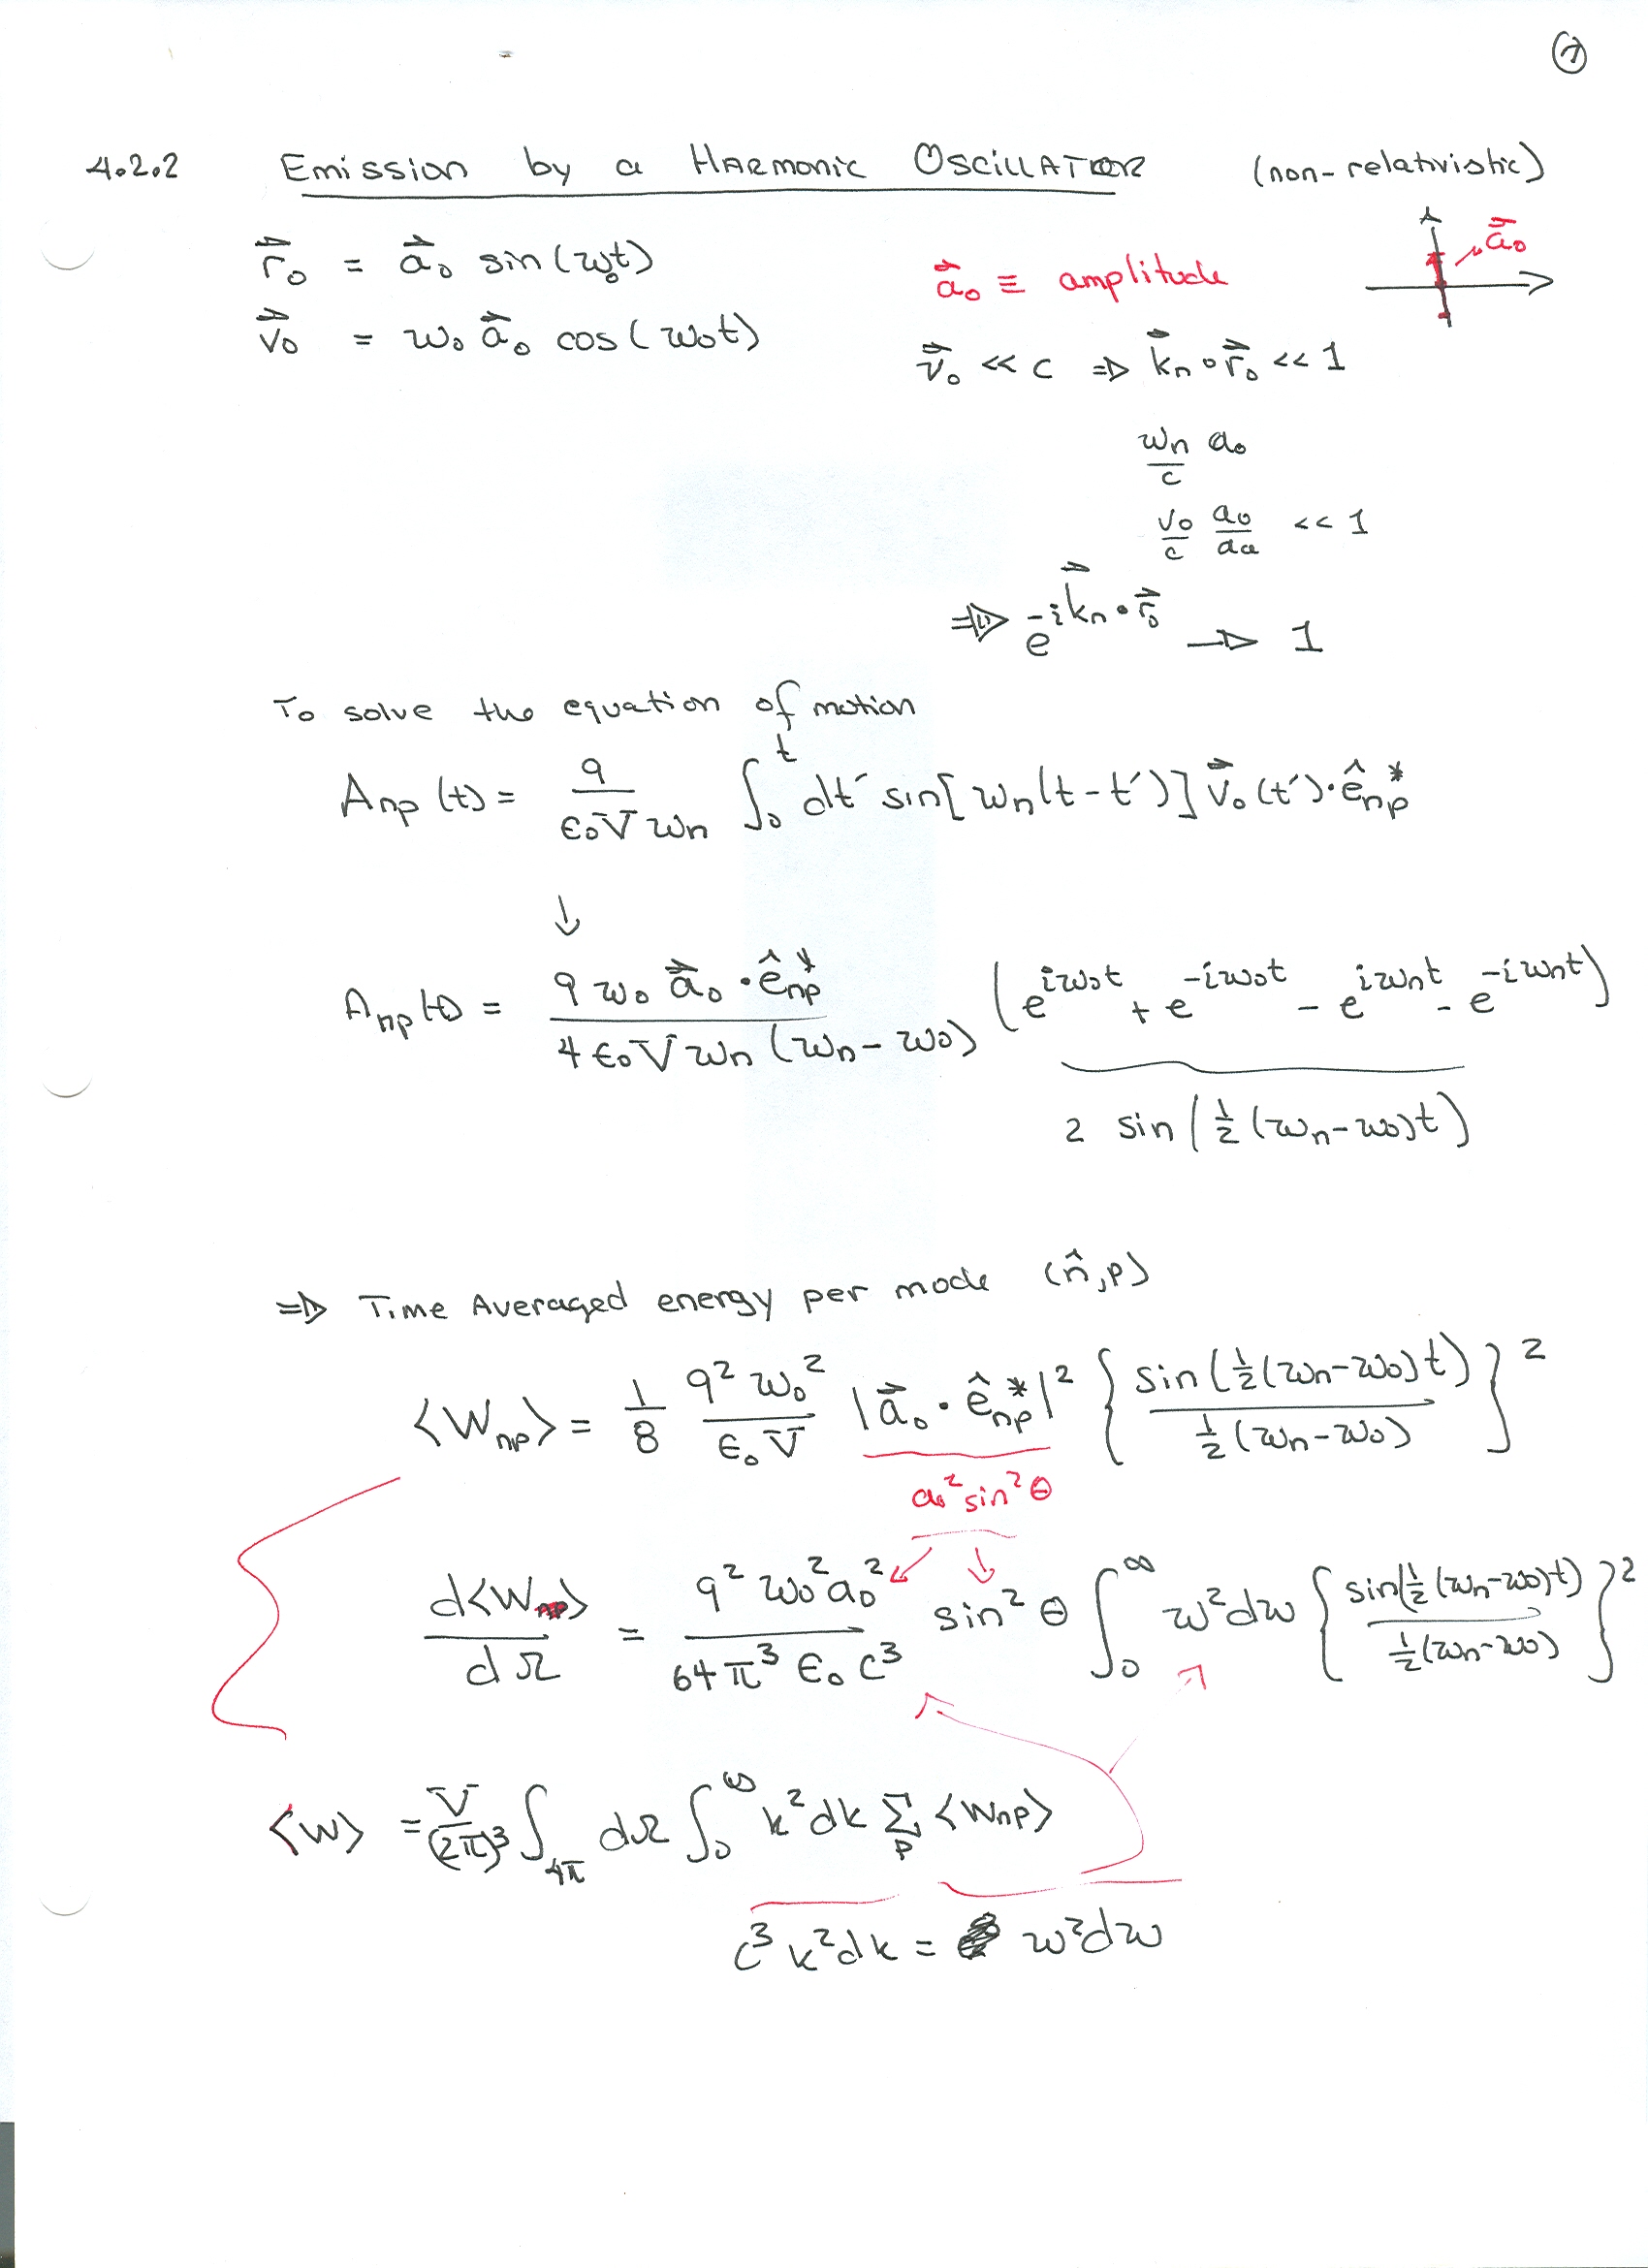 7
4.2.2 Emission by a Harmonic Oscillator (non-relativistic)
r⃗₀ = a⃗₀ sin(ω₀t)
a⃗₀ ≡ amplitude
a⃗₀
v⃗₀ = ω₀ a⃗₀ cos(ω₀t)
v⃗₀ << c ⇒ k⃗n · r⃗₀ << 1
ωn/c a₀
v₀/c a₀/a₀ << 1
⇒ e^(-i k⃗n · r⃗₀) → 1
To solve the equation of motion
Anp(t) = q/(ε₀ V ωn) ∫₀^t dt′ sin[ωn(t-t′)] v⃗₀(t′)·ênp*
↓
Anp(t) = (q ω₀ a⃗₀ · ênp*)/(4 ε₀ V ωn (ωn - ω₀)) (e^(iω₀t) + e^(-iω₀t) - e^(iωnt) - e^(-iωnt))
2 sin(½(ωn-ω₀)t)
⇒ Time Averaged energy per mode (n̂,p)
⟨Wnp⟩ = 1/8 (q² ω₀²)/(ε₀ V) |a⃗₀ · ênp*|² { sin(½(ωn-ω₀)t) / ½(ωn-ω₀) }²
a₀² sin²θ
d⟨W⟩/dΩ = (q² ω₀² a₀²)/(64 π³ ε₀ c³) sin²θ ∫₀^∞ ω²dω { sin(½(ωn-ω₀)t) / ½(ωn-ω₀) }²
⟨W⟩ = V/(2π)³ ∫4π dΩ ∫₀^∞ k²dk Σp ⟨Wnp⟩
c³ k²dk = ω²dω